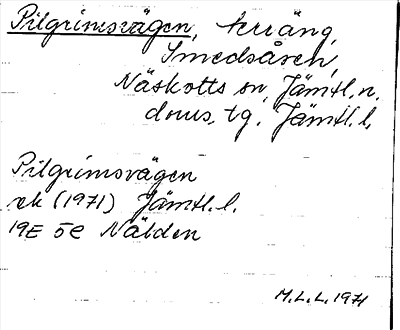 Pilgrimsvägen, terräng,
Smedsåsen,
Näskotts sn, Jämtl. n.
doms. tg. Jämtl. l.
Pilgrimsvägen
rek (1971) Jämtl. l.
19E 5e Nälden
M.L.L. 1971